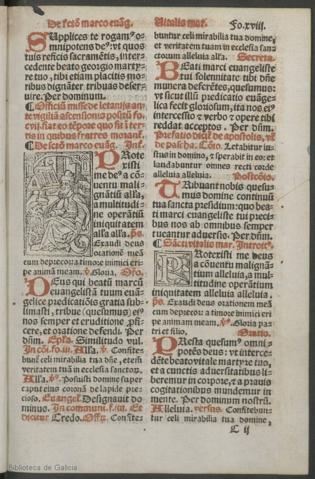 De sctō marco euāg.
Vitalis mar.
Fo.xviii.
Supplices te rogamꝰ omnipotens deꝰ: vt quos
tuis reficis sacramētis, intercedente beato georgio martyre tuo, tibi etiam placitis moribus dignāter tribuas deseruire. Per dominum.
De sctō marco euāg. Int.
Protexisti
me deꝰ a cōuentu malignātiū alľa, a
multitudine operātiū
iniquitatem
alľa alľa. ps.
Exaudi deus
orationē meā
cum deprecor: a timore inimici eripe animā meam. v. Gloria. Oro.
Deus qui beatū marcū
euangelistā tuum euāgelice predicatiōis gratia sublimasti, tribue (quesumus) eius nos semper et eruditione proficere, et oratione defendi. Per
dñm. Epľa. Similitudo vul.
Alľa. v. Posuisti domine super
caput eius coronā de lapide precioso. Euangel. Designauit dominus. In communi.
dicitur Credo. Offer. Confite-
buntur celi mirabilia tua domine,
et veritatem tuam in ecclesia sanctorum alleluia alľa. Secreta.
Beati marci euangeliste
tui solennitate tibi dñe
munera deferētes, quesumus:
vt sicut illū predicatio euāgelica fecit gloriosum, ita nos eiꝰ
intercessio et verbo et opere tibi
reddat acceptos. Per dñm.
Prefatio dicit de apostolis, vel
de pascha. Cōio. Letabitur iustus in domino, et sperabit in eo: et
laudabuntur omnes recti corde
alleluia alleluia. Postcōio.
Tribuant nobis quesumus domine continuū
tua sancta presidium: quo beati marci euangeliste tui precibus nos ab omnibus semper
tueantur aduersis. Per dñm.
Sācti vitalis mar. Introitꝰ.
Protexisti me deus
a cōuentu malignātium alleluia, a multitudine operātium
iniquitatem alleluia alleluia.
ps. Exaudi deus orationem meā
cum deprecor: a timore inimici eripe animam meam. v. Gloria patri et filio. Oratio.
Presta quesumꝰ omnipotēs deus: vt intercedēte beato vitale martyre tuo,
et a cunctis aduersitatibus liberemur in corpore, et a prauis
cogitationibus mundemur in
mente. Per dominum nostrū.
Alleluia. versus. Confitebuntur celi mirabilia tua domine,
C ij
Biblioteca de Galicia